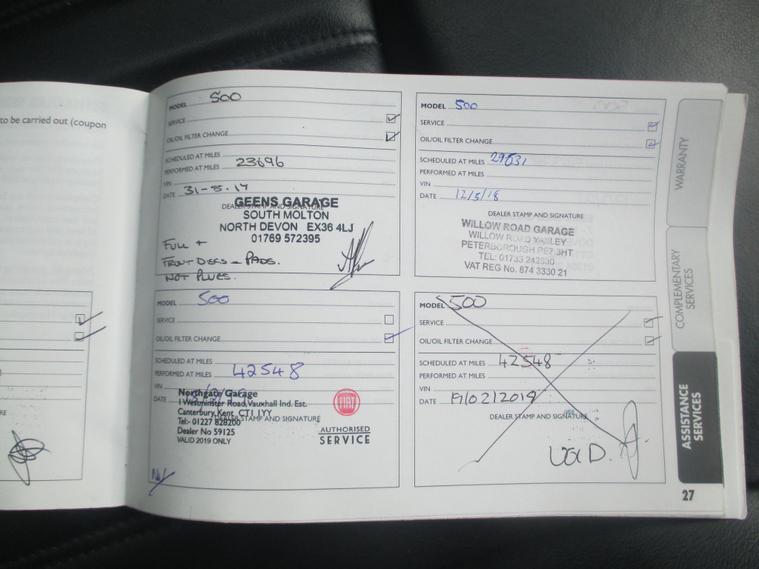 to be carried out (coupon
MODEL 500
SERVICE
OIL/OIL FILTER CHANGE
SCHEDULED AT MILES
PERFORMED AT MILES 23696
VIN
DATE 31-8-17
DEALER STAMP AND SIGNATURE
GEENS GARAGE
SOUTH MOLTON
NORTH DEVON EX36 4LJ
01769 572395
FULL +
FRONT DISCS - PADS.
NOT PLUGS.
MODEL 500
SERVICE
OIL/OIL FILTER CHANGE
SCHEDULED AT MILES
PERFORMED AT MILES
VIN
DATE 12/5/18
DEALER STAMP AND SIGNATURE
WILLOW ROAD GARAGE
WILLOW ROAD YAXLEY
PETERBOROUGH PE7 3HT
TEL: 01733 242330
VAT REG No. 874 3330 21
MODEL 500
SERVICE
OIL/OIL FILTER CHANGE
SCHEDULED AT MILES
PERFORMED AT MILES 42548
VIN
DATE
Northgate Garage
1 Westminster Road, Vauxhall Ind. Est.
Canterbury, Kent CT1 1YY
DEALER STAMP AND SIGNATURE
Tel:- 01227 828200
Dealer No 59125
VALID 2019 ONLY
FIAT
AUTHORISED
SERVICE
MODEL 500
SERVICE
OIL/OIL FILTER CHANGE
SCHEDULED AT MILES 42548
PERFORMED AT MILES
VIN
DATE 19/02/2019
DEALER STAMP AND SIGNATURE
VOID.
WARRANTY
COMPLEMENTARY
SERVICES
ASSISTANCE
SERVICES
27